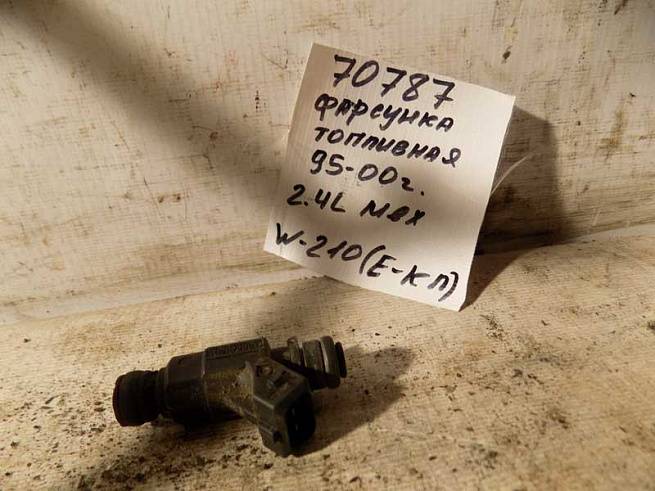 70787
ФАРСУНКА
ТОПЛИВНАЯ
95-00г.
2.4L Мех
W-210 (Е-КЛ)